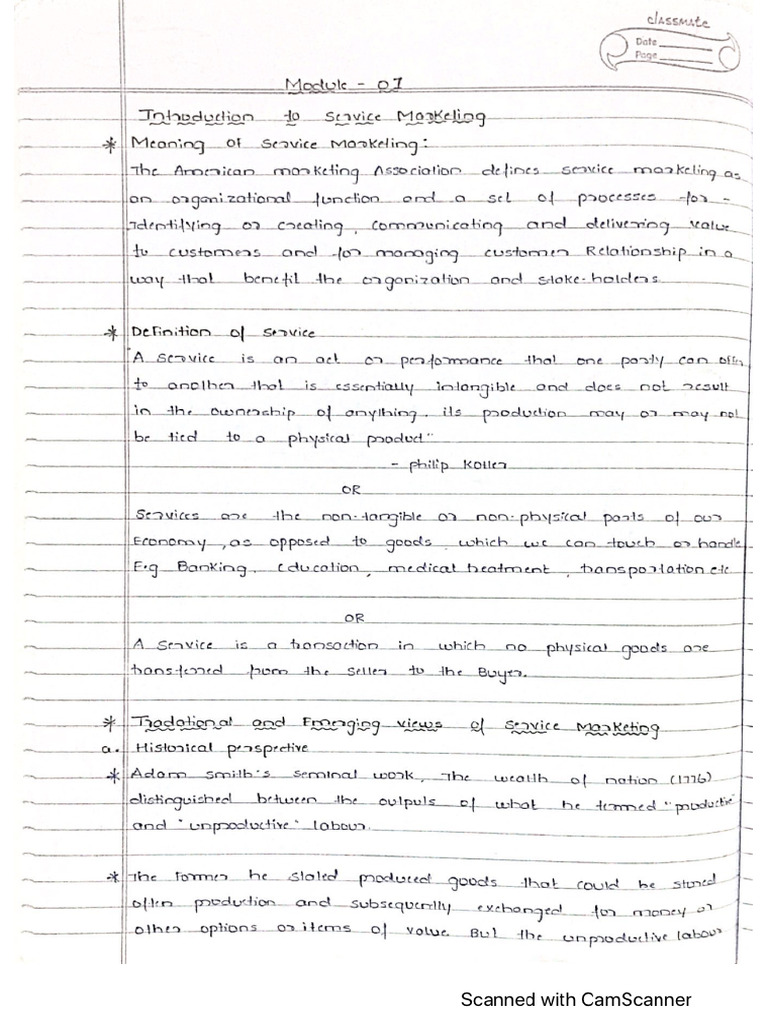 classmate
Date
Page
Module - 01
Introduction to Service Marketing
* Meaning of Service Marketing:
The American marketing Association defines service marketing as
an organizational function and a set of processes for -
Identifying or creating, communicating and delivering value
to customers and for managing customer Relationship in a
way that benefit the organization and stake-holders.
* Definition of Service
"A Service is an act or performance that one party can offer
to another that is essentially intangible and does not result
in the ownership of anything. its production may or may not
be tied to a physical product"
- Philip Kotler
OR
Services are the non-tangible or non-physical parts of our
Economy, as opposed to goods, which we can touch or handle
E.g Banking, Education, medical treatment, transportation etc
OR
A Service is a transaction in which no physical goods are
transferred from the Seller to the Buyer.
* Tradational and Emerging views of Service Marketing
a. Historical perspective
* Adam Smith's seminal work, The wealth of nation (1776)
distinguished between the outputs of what he termed "productive"
and "unproductive" labour.
* The Former he stated produced goods that could be stored
often production and subsequently exchanged for money or
other options or items of value. But the unproductive labour
Scanned with CamScanner